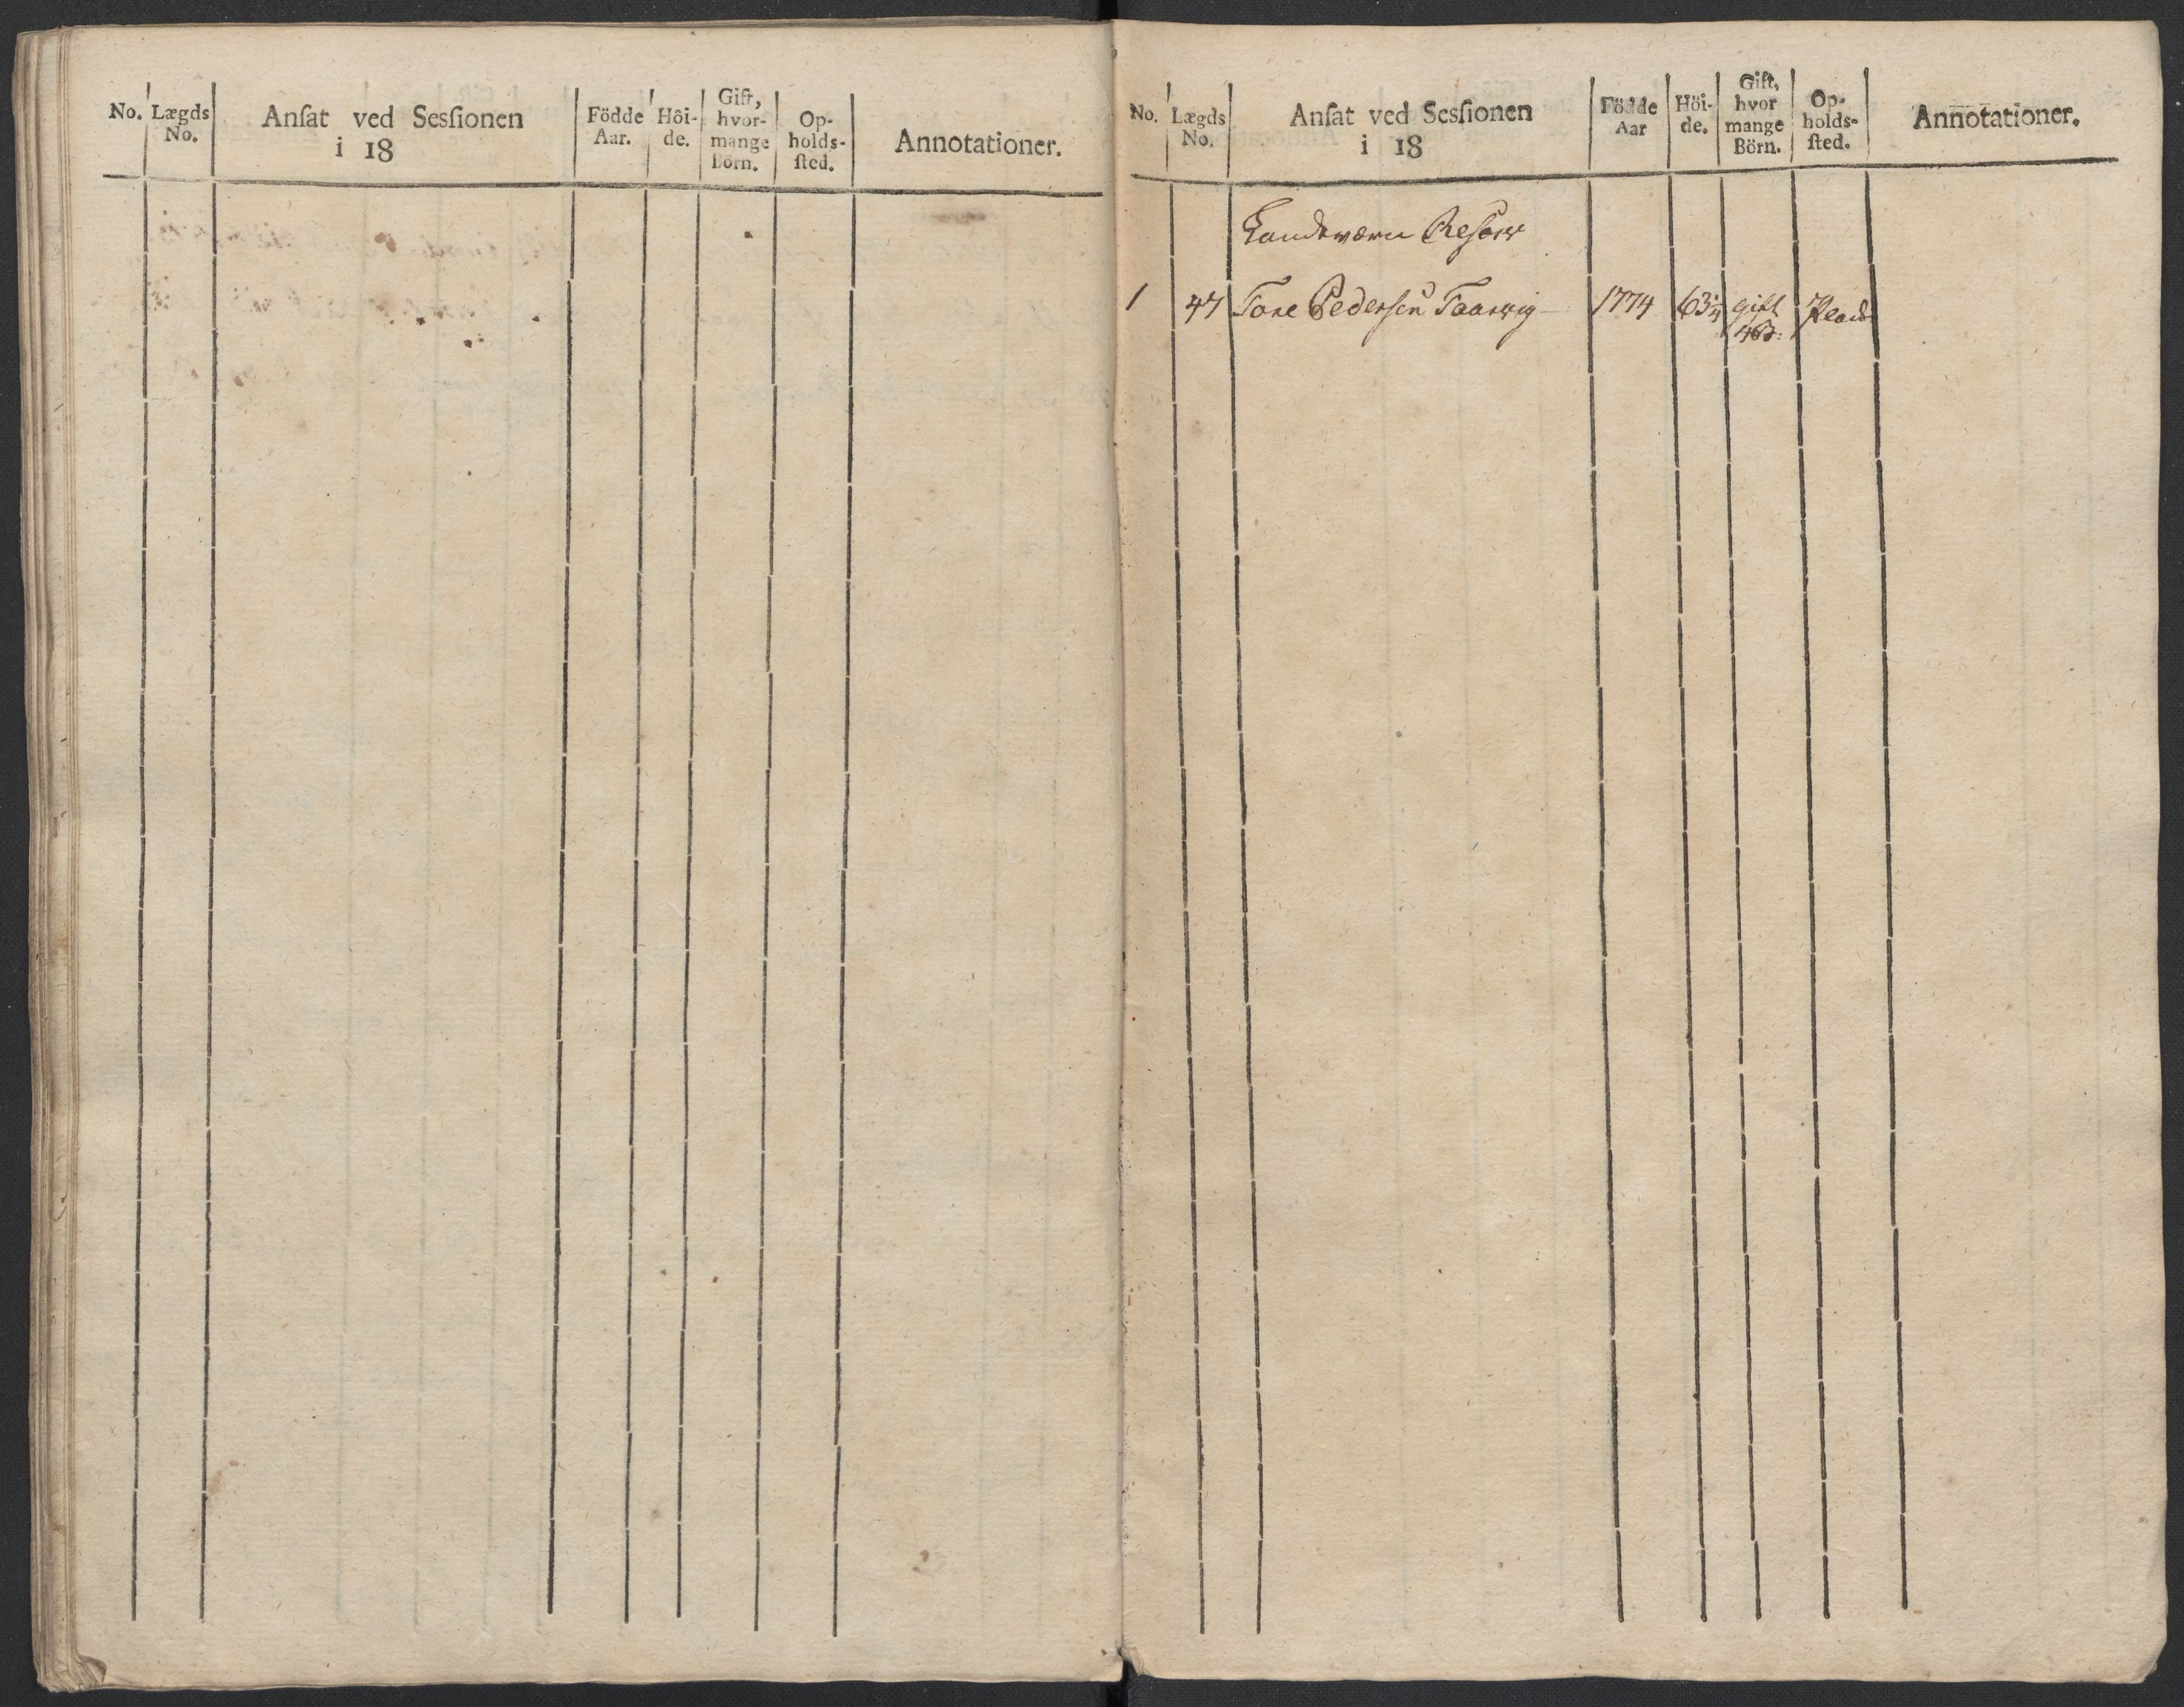 No. Lægds No. Anſat ved Sesſionen i 18 Födde Aar. Höi- de. Gift, hvor- mange Börn. Op- holds- ſted. Annotationer.
No. Lægds No. Anſat ved Sesſionen i 18 Födde Aar Höi- de. Gift, hvor mange Börn. Op- holds- ſted. Annotationer.
Landeværn Reserv
1 47 Tore Pedersen Taarvig 1774 63 gift